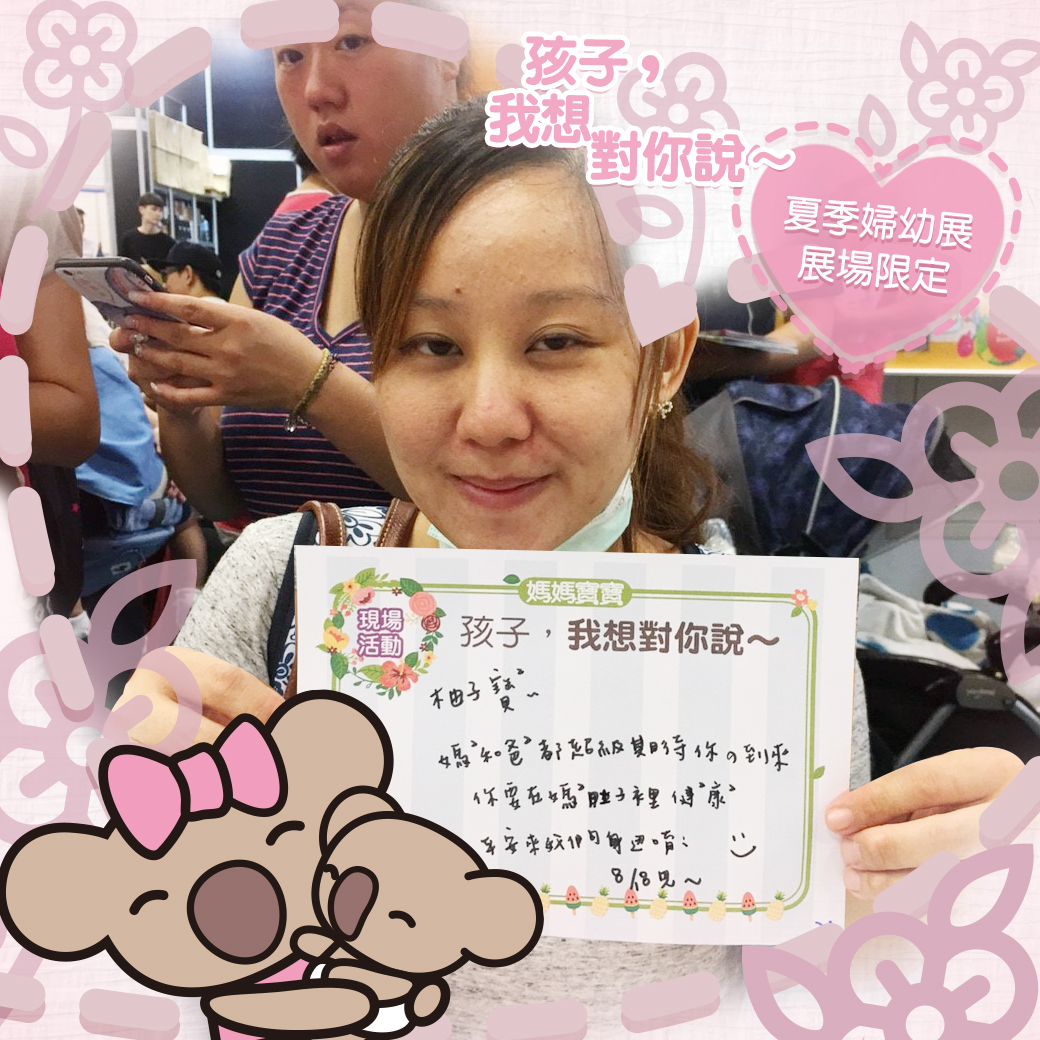 孩子，
我想
對你說～
夏季婦幼展
展場限定
媽媽寶寶
現場
活動
孩子，我想對你說～
柚子寶²～
媽²和爸²都超級期待你の到來
你要在媽²肚子裡健²康²
平安來我們身邊唷：
8/8見～